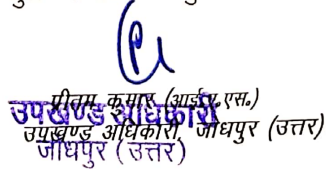 प्रीतम कुमार (आई.ए.एस.)
उपखण्ड अधिकारी
उपखण्ड अधिकारी, जोधपुर (उत्तर)
जोधपुर (उत्तर)